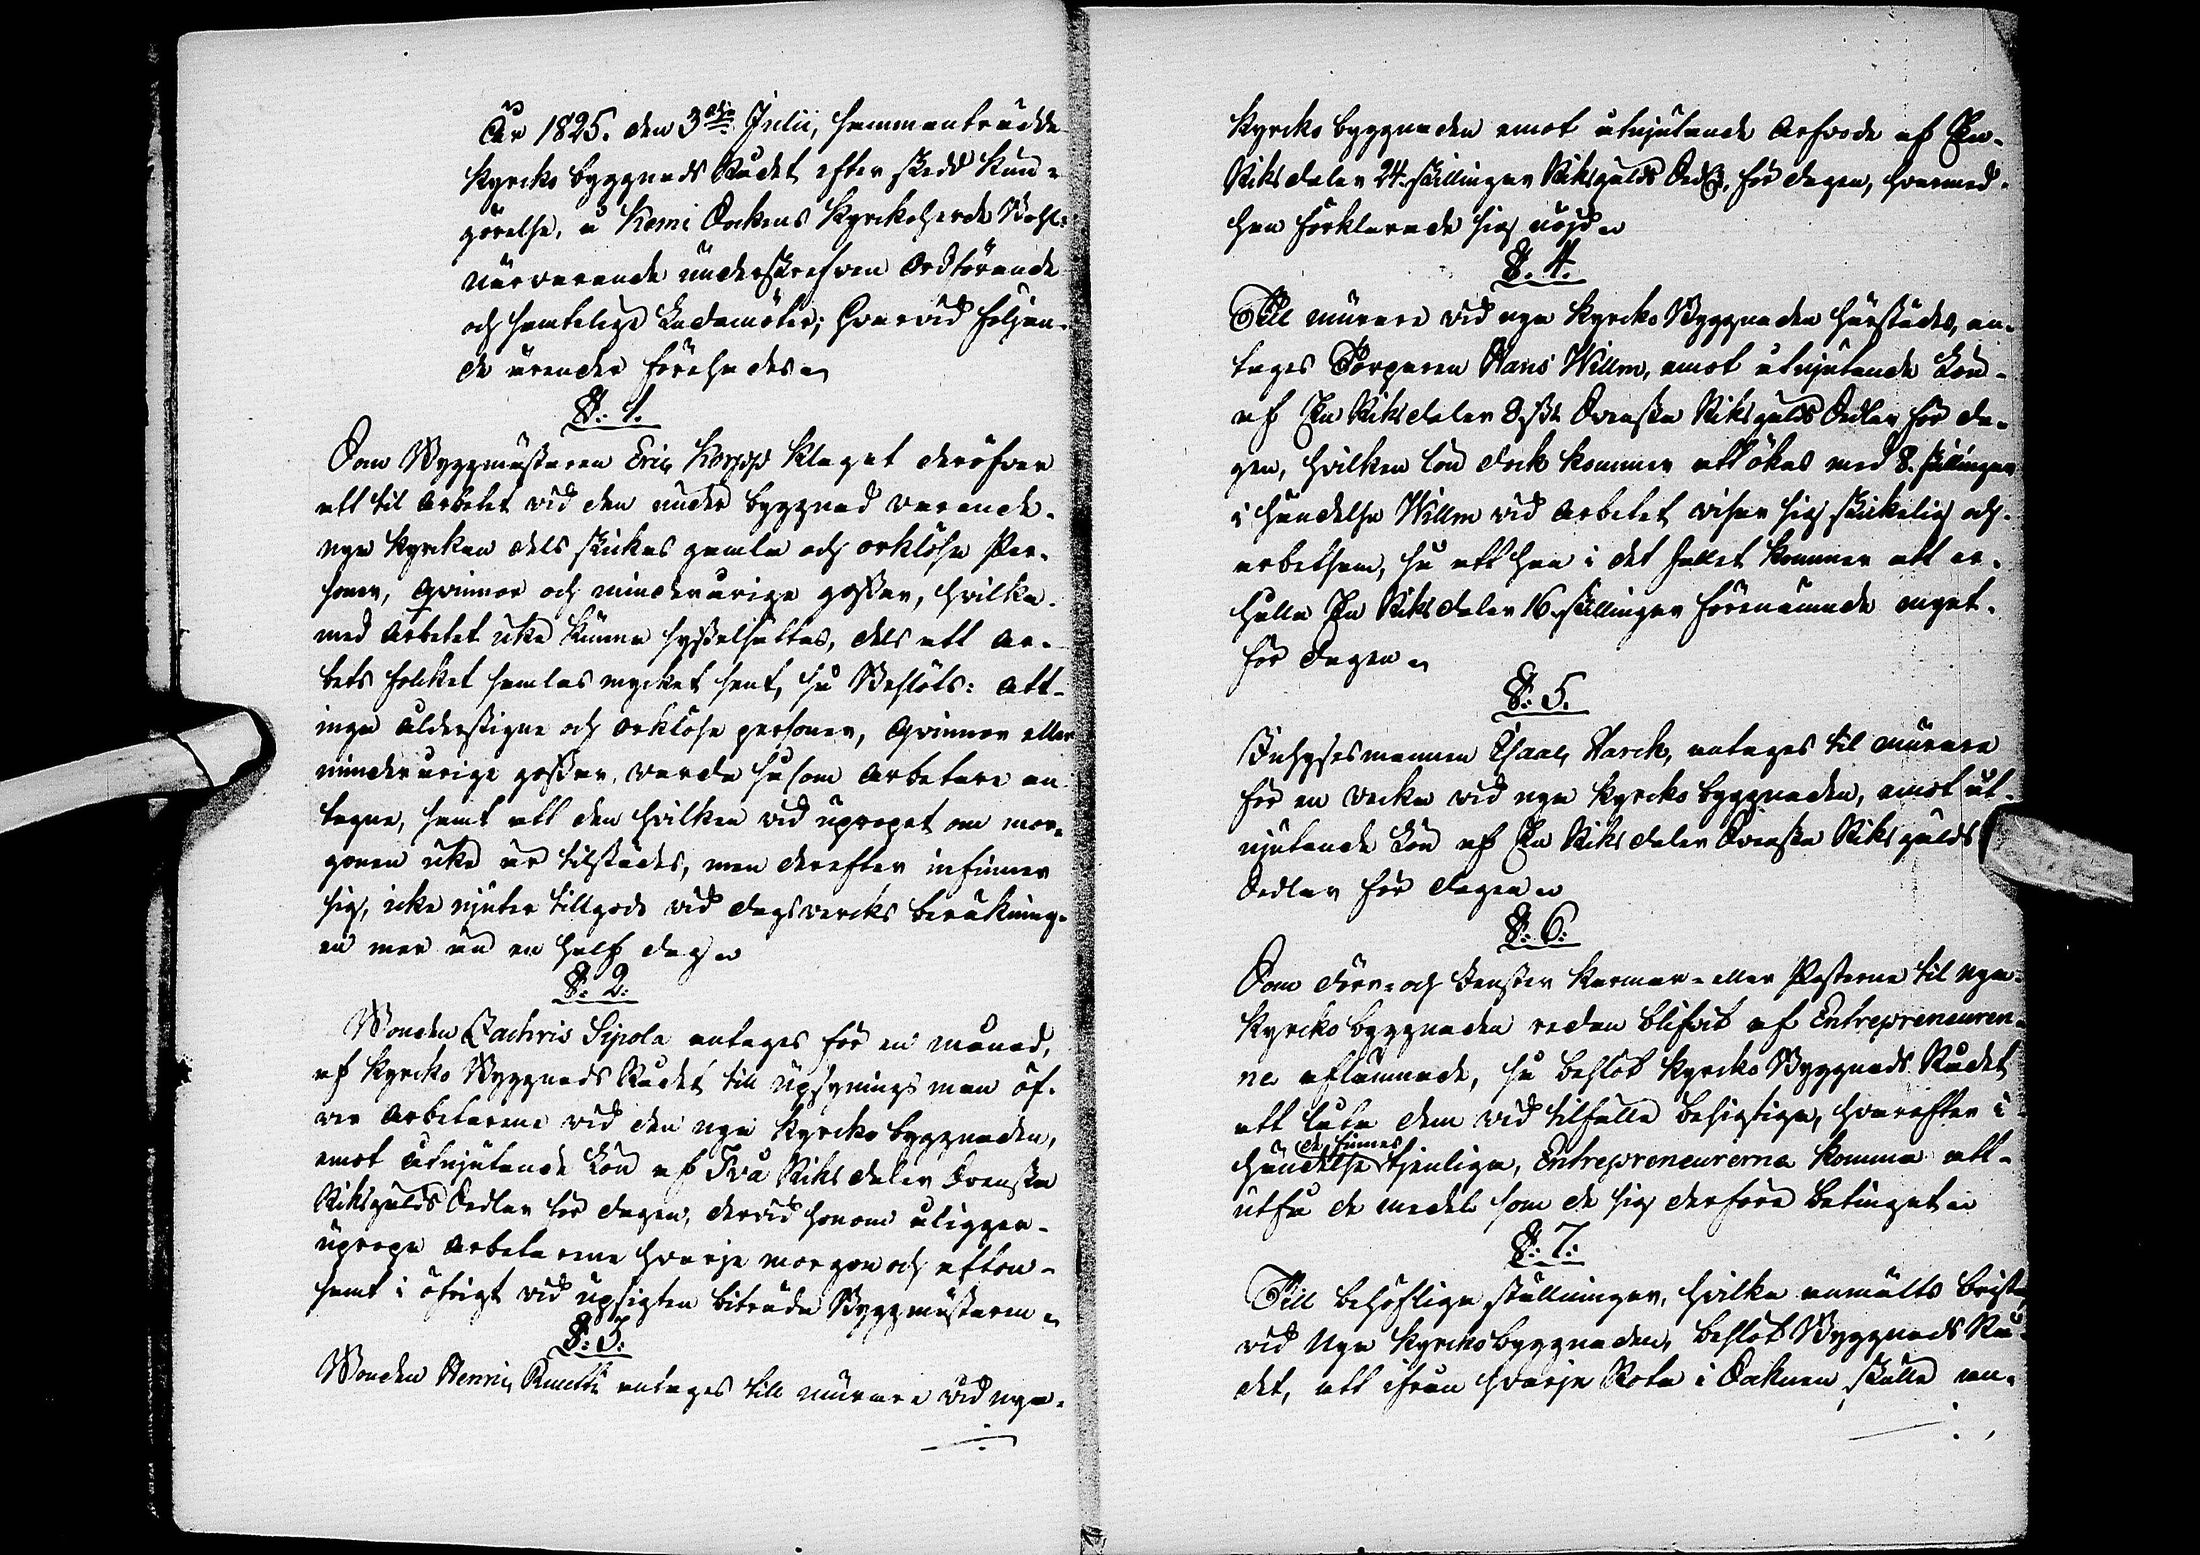 År 1825. den 3dje Julii, sammanträdde
Kyrcko byggnads Rådet efter skedd kun-
görelse, i Kemi Sockens Kyrckoherde Bohl:
närvarande underskrefven Ordförande
och samtelige Ledamöter; hvarvid följan-
de ärender förehades.
§. 1.
Som Byggmästaren Eric Korpp klagat deröfver
att til Arbetet vid den under byggnad varande
nya Kyrckan dels skickas gamla och orklösa Per-
soner, qvinnor och minderårige gossar, hvilka
med Arbetet icke kunna sysselsättas, dels att Ar-
bets folcket samlas mycket sent, så Beslöts: att
inga ålderstigne och orklösa personer, qvinnor eller
minderårige gossar, varda såsom Arbetare an-
tagne, samt att den hvilken vid uproppet om mor-
gonen icke är tilstädes, men derefter infinner
sig, icke njuter tillgodo vid dagsvercks beräkning-
en mer än en half dag.
§. 2.
Bonden Zachris Sipola antages för en månad,
af Kyrcko Byggnads Rådet till upsynings man öf-
ver Arbetarene vid den nya Kyrcko byggnaden,
emot åtnjutande Lön af Två Riksdaler Svenska
Riksgälds Sedlar för dagen, dervid honom åligger
upropa Arbetarene hvarje morgon och afton
samt i öfrigt vid upsigten biträda Byggmästaren.
§. 3.
Bonden Henric Ruutti antages till murare vid nya
Kyrcko byggnaden emot åtnjutande Arfvode af En
Riksdaler 24. skillingar Riksgälds Sedl. för dagen, hvarmed
han förklarade sig nöjd.
§. 4.
Till murare vid nya Kyrcko Byggnaden härstädes, an-
tages Torparen Hans Willm, emot åtnjutande Lön
af En Riksdaler 8 sk: Svenska Riksgälds Sedlar för da-
gen, hvilken lön dock kommer att ökas med 8. skillingar
i händelse Willm vid Arbetet visar sig skickelig och
arbetsam, så att han i det fallet kommer att er-
hålla En Riksdaler 16. skillingar förenämnde mynt
för dagen.
§. 5.
Inhysesmannen Esaac Harck, antages til murare
för en vecka vid nya Kyrcko byggnaden, emot åt-
njutande Lön af En Riksdaler Svenska Riksgälds
Sedlar för dagen.
§. 6.
Som dörr- och Fenster Karmar- eller Posterne til nya
Kyrcko byggnaden redan blifvit af Entrepreneuren-
ne aflämnade, så beslöt Kyrcko Byggnads Rådet
att låta dem vid tilfälle besigtiga, hvarefter i
händelse de finnes tjenliga, Entrepreneurerna komma att
utfå de medel som de sig derföre betingat.
§. 7.
Till behöflige ställningar, hvilka anmälts brista
vid Nya Kyrckobyggnaden, beslöt Byggnads Rå-
det, att ifrån hvarje Rote i Socknen skulle an-